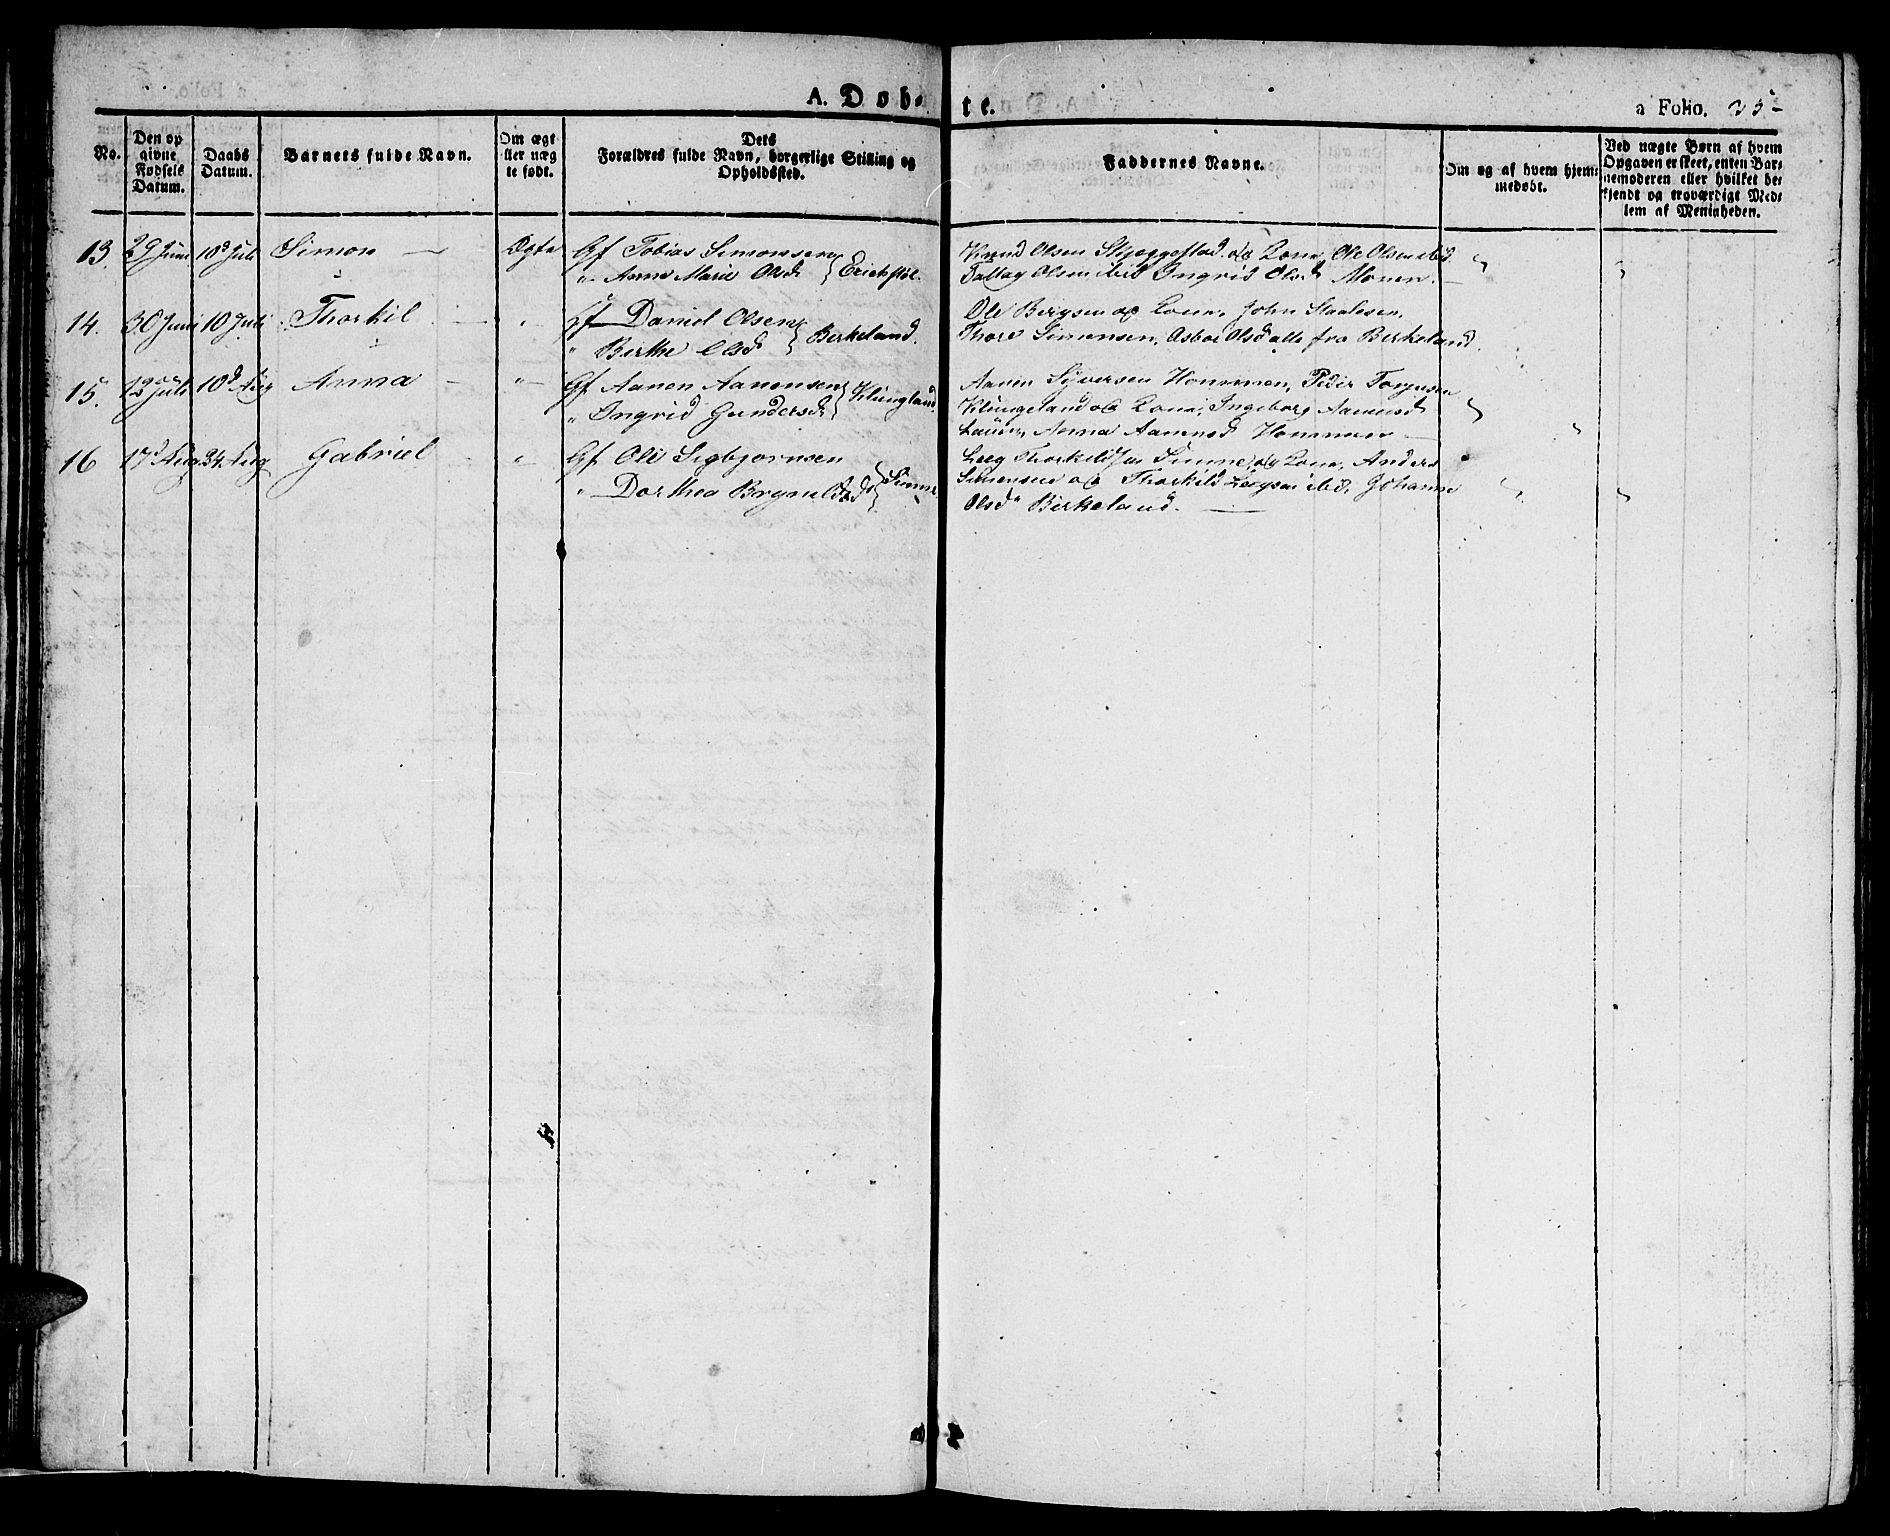 A. Døbte.
a Folio. 35
No.
Den op
givne
Fødsels
Datum.
Daabs
Datum.
Barnets fulde Navn.
Om ægt
eller uæg
te født.
Dets
Forældres fulde Navn, borgerlige Stilling og
Opholdssted.
Faddernes Navne.
Om og af hvem hjem:
medøbt.
Ved uægte Børn af hvem
Opgaven er skeet, enten Bar:
nemoderen eller hvilket be:
kjendt og troværdigt Med:
lem af Menigheden.
13. 29 Juni 10d Juli Simon — Ægte Gf Tobias Simonsen
" Anna Marie Olsd } Erichstøl.
Knud Olsen Skjeggestad og Kone, Ole Olsen ibid
Olsen ibid Ingrid Olsd Monen. —
14. 30 Juni 10 Juli Thorkil — " Gf Daniel Olsen
" Birthe Olsd } Birkeland.
Ole Bergsen og Kone, John Staalesen,
Thore Simonsen, Asbor Olsd alle fra Birkeland.
15. 12 Juli 10d Aug Anna — " — Gf Aanen Aanensen
" Ingrid Gundersd } Klungland.
Aanen Syversen Hommen, Peder Torgersen
Klungeland og Kone, Ingeborg Aanensd
Anna Aanensd Hommen —
16 17d Aug 24 Aug Gabriel — " Gf Ole Sigbjørnsen
" Dorthea Brynildsd
Thorkildsen og Kone, Anders
Simonsen og Thorkild ibid, Johanne
Olsd Birkeland. —